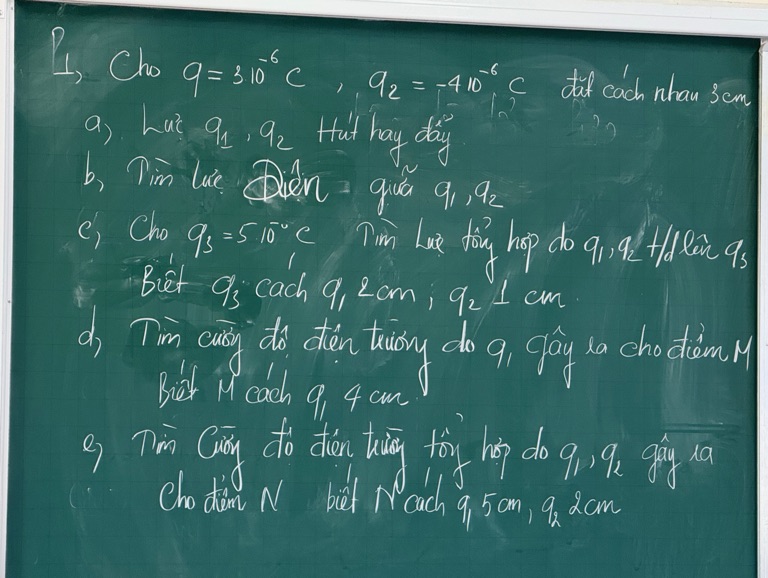 B1, Cho q = 3 10⁻⁶ C , q₂ = -4 10⁻⁶ C đặt cách nhau 3 cm
a, Lực q₁, q₂ Hút hay đẩy
b, Tìm lực Điện giữa q₁, q₂
c, Cho q₃ = 5 10 C Tìm Lực tổng hợp do q₁, q₂ t/d lên q₃
Biết q₃ cách q₁ 2 cm ; q₂ 1 cm.
d, Tìm cường độ điện trường do q₁ gây ra cho điểm M
Biết M cách q₁ 4 cm.
e, Tìm Cường độ điện trường tổng hợp do q₁, q₂ gây ra
Cho điểm N biết N cách q₁ 5 cm, q₂ 2 cm